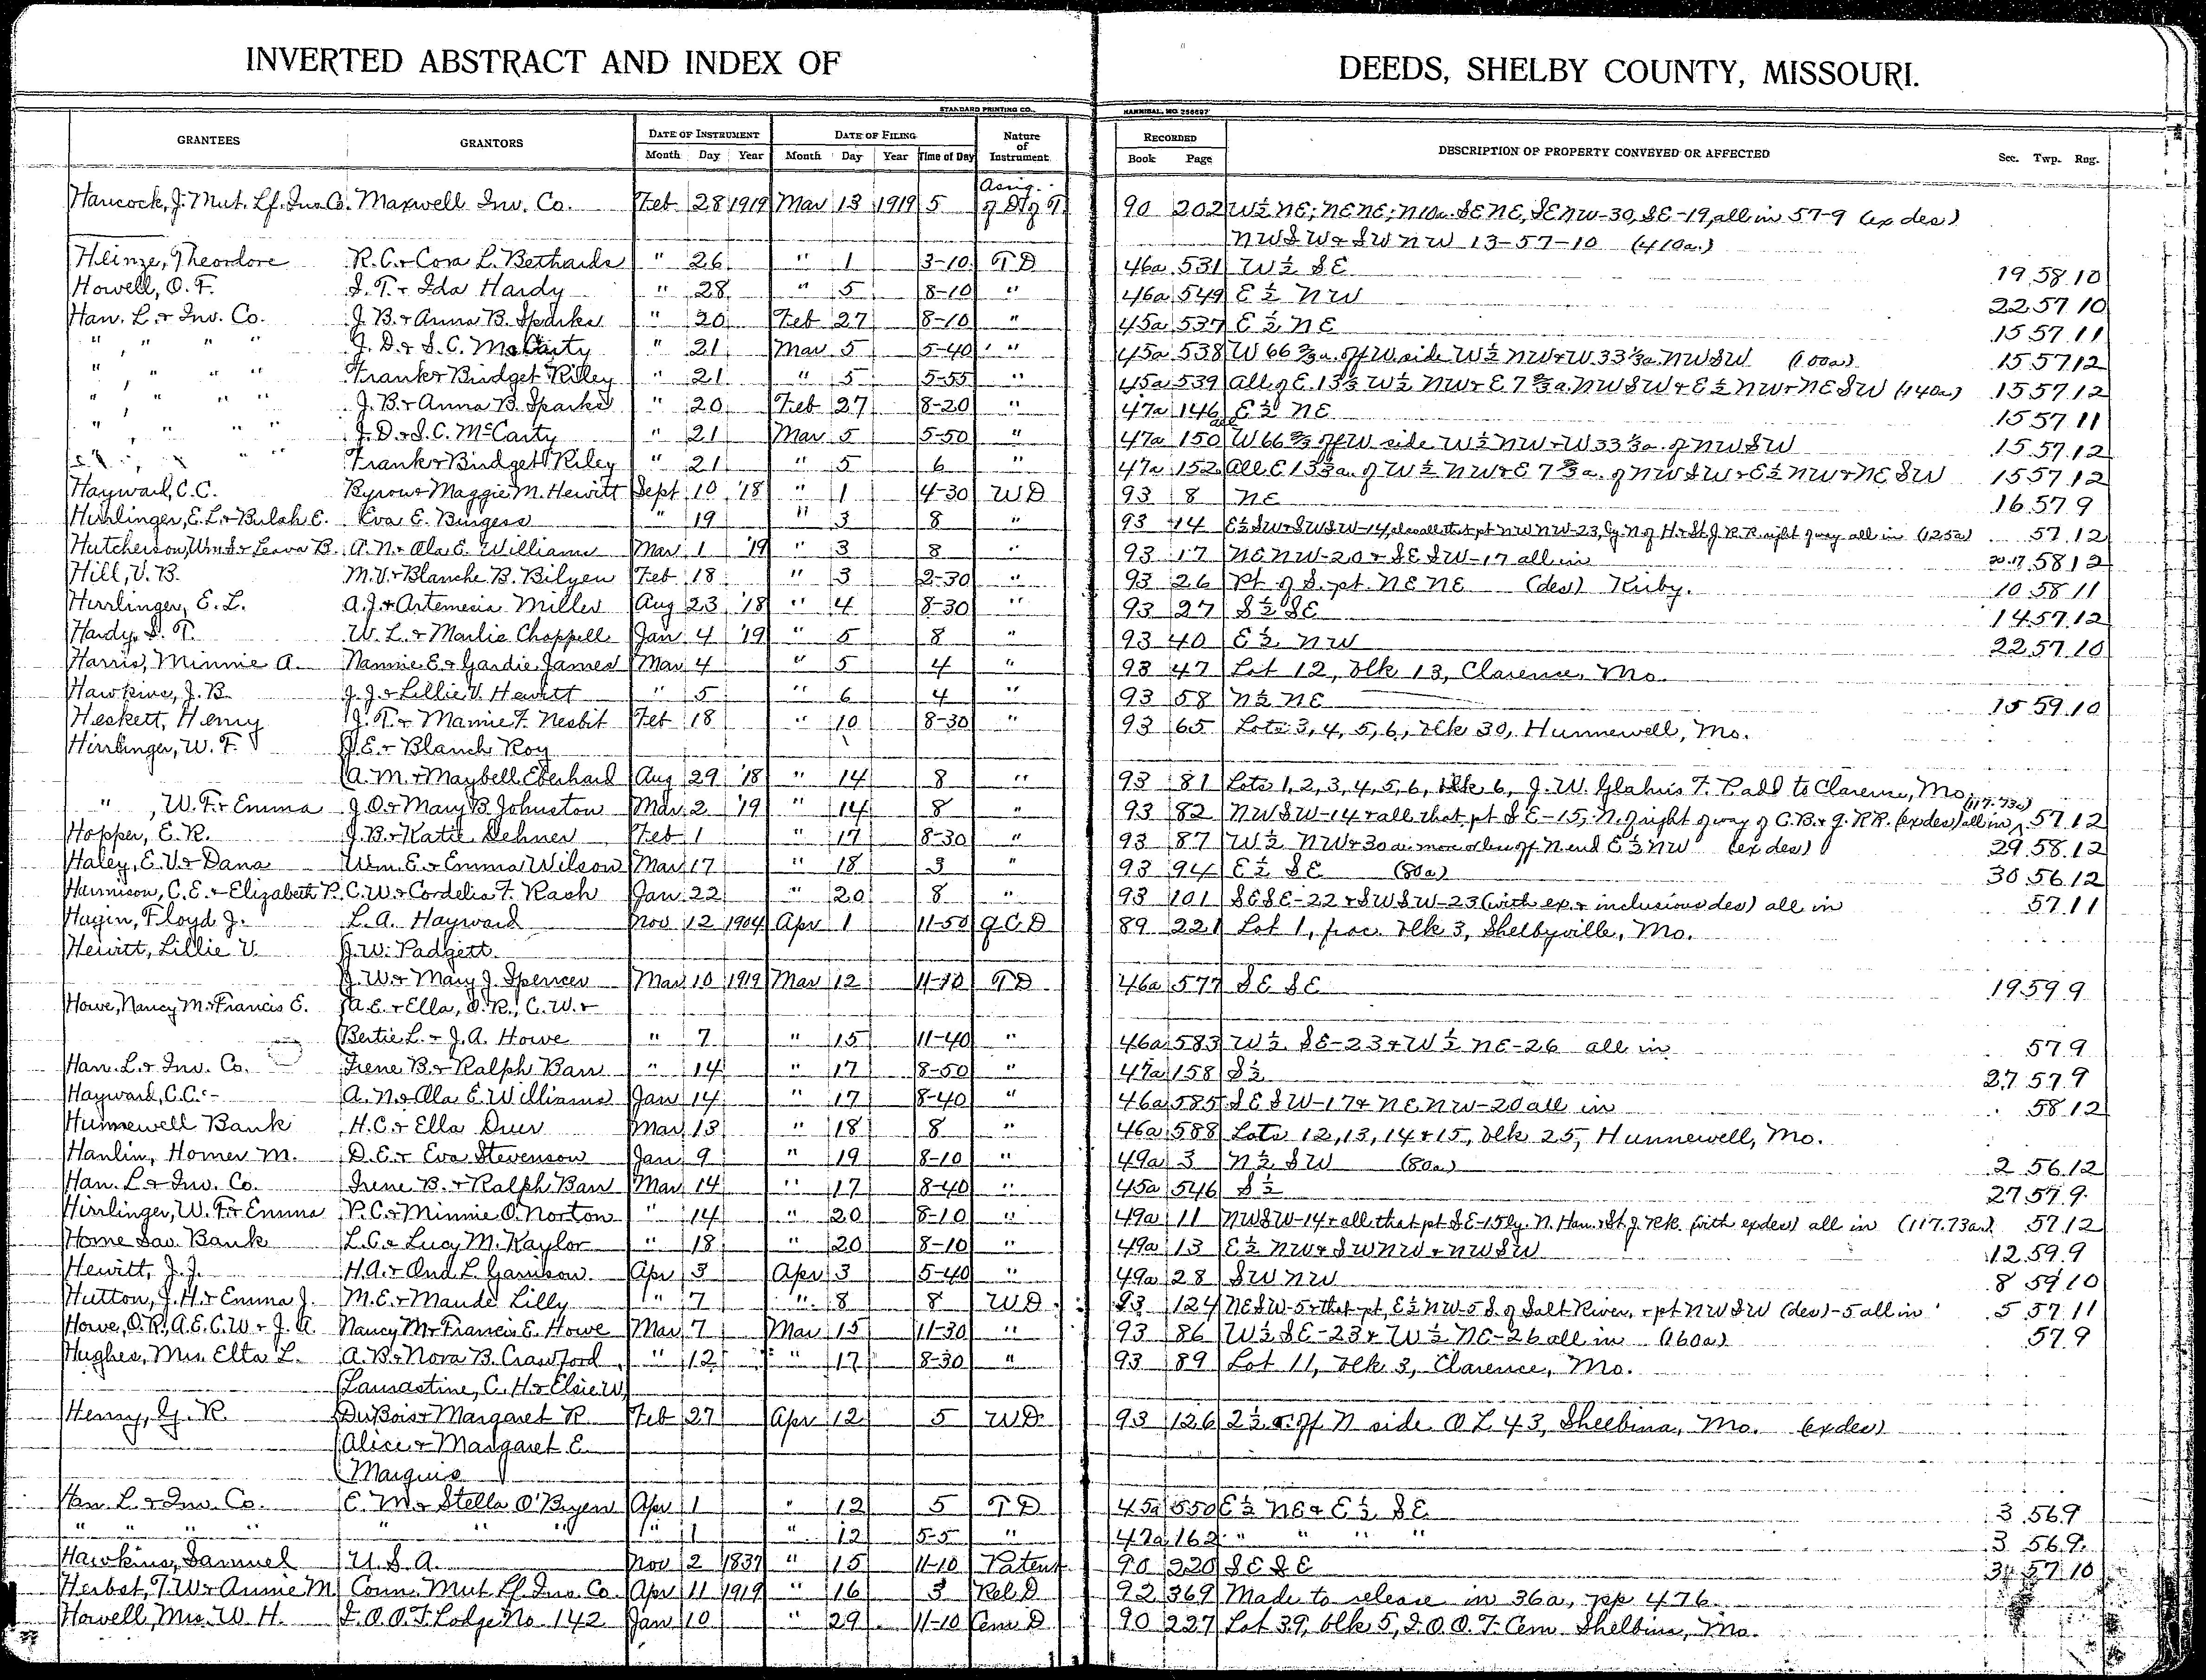 INVERTED ABSTRACT AND INDEX OF DEEDS, SHELBY COUNTY, MISSOURI.
STANDARD PRINTING CO., HANNIBAL, MO. 256697
GRANTEES GRANTORS DATE OF INSTRUMENT DATE OF FILING Nature of Instrument RECORDED DESCRIPTION OF PROPERTY CONVEYED OR AFFECTED Sec. Twp. Rng.
Month Day Year Month Day Year Time of Day Book Page
Assig.
Hancock, J. Mut. Lf. Ins Co. Maxwell Inv. Co. Feb 28 1919 Mar 13 1919 5 of D of T 90 202 W½ NE; NENE; N10a. SENE, SENW-30, SE-19, all in 57-9 (ex des)
NWSW & SWNW 13-57-10 (410a.)
Heinze, Theordore R.C. & Cora L. Bethards " 26 " 1 3-10 TD 46a 531 W½ SE 19 58 10
Howell, O.F. S.T. & Ida Hardy " 28 " 5 8-10 " 46a 549 E½ NW 22 57 10
Han. L. & Inv. Co. J.B. & Anna B. Sparks " 20 Feb 27 8-10 " 45a 537 E½ NE 15 57 11
" " " " J.D. & S.C. McCarty " 21 Mar 5 5-40 " 45a 538 W 66⅔a. off W side W½ NW & W 33⅓a. NWSW (100a) 15 57 12
" " " " Frank & Bridget Riley " 21 " 5 5-55 " 45a 539 all of E. 13⅓ W½ NW & E 7⅔a. NWSW & E½ NW & NESW (140a) 15 57 12
" " " " J.B. & Anna B. Sparks " 20 Feb 27 8-20 " 47a 146 E½ NE 15 57 11
" " " " J.D. & S.C. McCarty " 21 Mar 5 5-50 " 47a 150 W 66⅔ off W side W½ NW & W 33⅓a. of NWSW 15 57 12
" " " " Frank & Bridget Riley " 21 " 5 6 " 47a 152 All E 13⅓a. of W½ NW & E 7⅔a. of NWSW & E½ NW & NESW 15 57 12
Hayward, C.C. Byron & Maggie M. Hewitt Sept 10 '18 " 1 4-30 WD 93 8 NE 16 57 9
Hirrlinger, E.L. & Bulah E. Eva E. Burgess " 19 " 3 8 " 93 14 E½SW & SWSW-14, also all that pt NWNW-23, lyg N of H & St J R.R. right of way all in (125a) 57 12
Hutcherson, Wm S & Leava B. A.N. & Ola E. Williams Mar 1 '19 " 3 8 " 93 17 NENW-20 & SESW-17 all in 20.17 58 12
Hill, V.B. M.V. & Blanche B. Bilyeu Feb 18 " 3 2-30 " 93 26 Pt of S. pt. NENE (des) Kirby. 10 58 11
Hirrlinger, E.L. A.J. & Artemesia Miller Aug 23 '18 " 4 8-30 " 93 27 S½ SE 14 57 12
Hardy, S.T. W.L. & Marlie Chappell Jan 4 '19 " 5 8 " 93 40 E½ NW 22 57 10
Harris, Minnie A. Nannie E. & Gardie James Mar 4 " 5 4 " 93 47 Lot 12, blk 13, Clarence, Mo.
Hawkins, J.B. J.J. & Lillie V. Hewitt " 5 " 6 4 " 93 58 N½ NE 15 59 10
Heskett, Henry J.T. & Mamie F. Nesbit Feb 18 " 10 8-30 " 93 65 Lots 3, 4, 5, 6, blk 30, Hunnewell, Mo.
Hirrlinger, W.F. J.E. & Blanch Roy
A.M. & Maybell Eberhard Aug 29 '18 " 14 8 " 93 81 Lots 1, 2, 3, 4, 5, 6, blk 6, J.W. Glahn's F. P. add to Clarence, Mo.
" , W.F. & Emma J.O. & Mary B. Johnston Mar 2 '19 " 14 8 " 93 82 NWSW-14 & all that pt SE-15, N. of right of way of C.B. & Q. RR. (ex des) all in (117.73a) 57 12
Hopper, E.R. J.B. & Katie Dehner Feb 1 " 17 8-30 " 93 87 W½ NW & 30a. more or less off N end E½ NW (ex des) 29 58 12
Haley, E.V. & Dana Wm. E. & Emma Wilson Mar 17 " 18 3 " 93 94 E½ SE (80a) 30 56 12
Harmison, C.E. & Elizabeth P. C.W. & Cordelia F. Rash Jan 22 " 20 8 " 93 101 SESE-22 & SWSW-23 (with ex. & inclusions des) all in 57 11
Hagin, Floyd J. L.A. Hayward Nov 12 1904 Apr 1 11-50 QCD 89 221 Lot 1, frac. blk 3, Shelbyville, Mo.
Hewitt, Lillie V. J.W. Padgett
J.W. & Mary J. Spencer Mar 10 1919 Mar 12 11-10 TD 46a 577 SESE 19 59 9
Howe, Nancy M. & Francis E. A.E. & Ella, O.R., C.W. &
Bertie L. & J.A. Howe " 7 " 15 11-40 " 46a 583 W½ SE-23 & W½ NE-26 all in 57 9
Han. L. & Inv. Co. Irene B. & Ralph Barr " 14 " 17 8-50 " 47a 158 S½ 27 57 9
Hayward, C.C. A.N. & Ola E. Williams Jan 14 " 17 8-40 " 46a 585 SESW-17 & NENW-20 all in 58 12
Hunnewell Bank H.C. & Ella Duer Mar 13 " 18 8 " 46a 588 Lots 12, 13, 14 & 15, blk 25, Hunnewell, Mo.
Hanlin, Homer M. D.E. & Eva Stevenson Jan 9 " 19 8-10 " 49a 3 N½ SW (80a) 2 56 12
Han. L & Inv. Co. Irene B. & Ralph Barr Mar 14 " 17 8-40 " 45a 546 S½ 27 57 9
Hirrlinger, W.F. & Emma P.C. & Minnie O. Norton " 14 " 20 8-10 " 49a 11 NWSW-14 & all that pt SE-15 ly. N. Han. & St. J. RR. (with ex des) all in (117.73a) 57 12
Home Sav. Bank L.C. & Lucy M. Kaylor " 18 " 20 8-10 " 49a 13 E½ NW & SWNW & NWSW 12 59 9
Hewitt, J.J. H.A. & Ona L Garrison Apr 3 Apr 3 5-40 " 49a 28 SWNW 8 59 10
Hutton, J.H. & Emma J. M.E. & Maude Lilly " 7 " 8 8 WD 93 124 NESW-5 & that pt. E½ NW-5 S. of Salt River, & pt NWSW (des)-5 all in 5 57 11
Howe, O.R., A.E. C.W. & J.A. Nancy M & Francis E. Howe Mar 7 Mar 15 11-30 " 93 86 W½ SE-23 & W½ NE-26 all in (160a) 57 9
Hughes, Mrs. Elta L. A.B. & Nora B. Crawford " 12 " 17 8-30 " 93 89 Lot 11, blk 3, Clarence, Mo.
Laurastine, C.H. & Elsie W.
Henry, G.R. DuBois & Margaret R Feb 27 Apr 12 5 WD 93 126 2½ a. off N side OL 43, Shelbina, Mo. (ex des)
Alice & Margaret E.
Marquis
Han. L. & Inv. Co. E.M. & Stella O'Bryen Apr 1 " 12 5 TD 45a 550 E½ NE & E½ SE 3 56 9
" " " " " " " " 1 " 12 5-5 " 47a 162 " " " " 3 56 9
Hawkins, Samuel U.S.A. Nov 2 1837 " 15 11-10 Patent 90 220 SESE 34 57 10
Herbst, T.W. & Annie M. Conn. Mut Lf. Ins. Co. Apr 11 1919 " 16 3 Rel D 92 369 Made to release in 36a, pp 476
Howell, Mrs. W.H. I.O.O.F. Lodge No. 142 Jan 10 " 29 11-10 Cem D 90 227 Lot 39, blk 5, I.O.O.F. Cem. Shelbina, Mo.